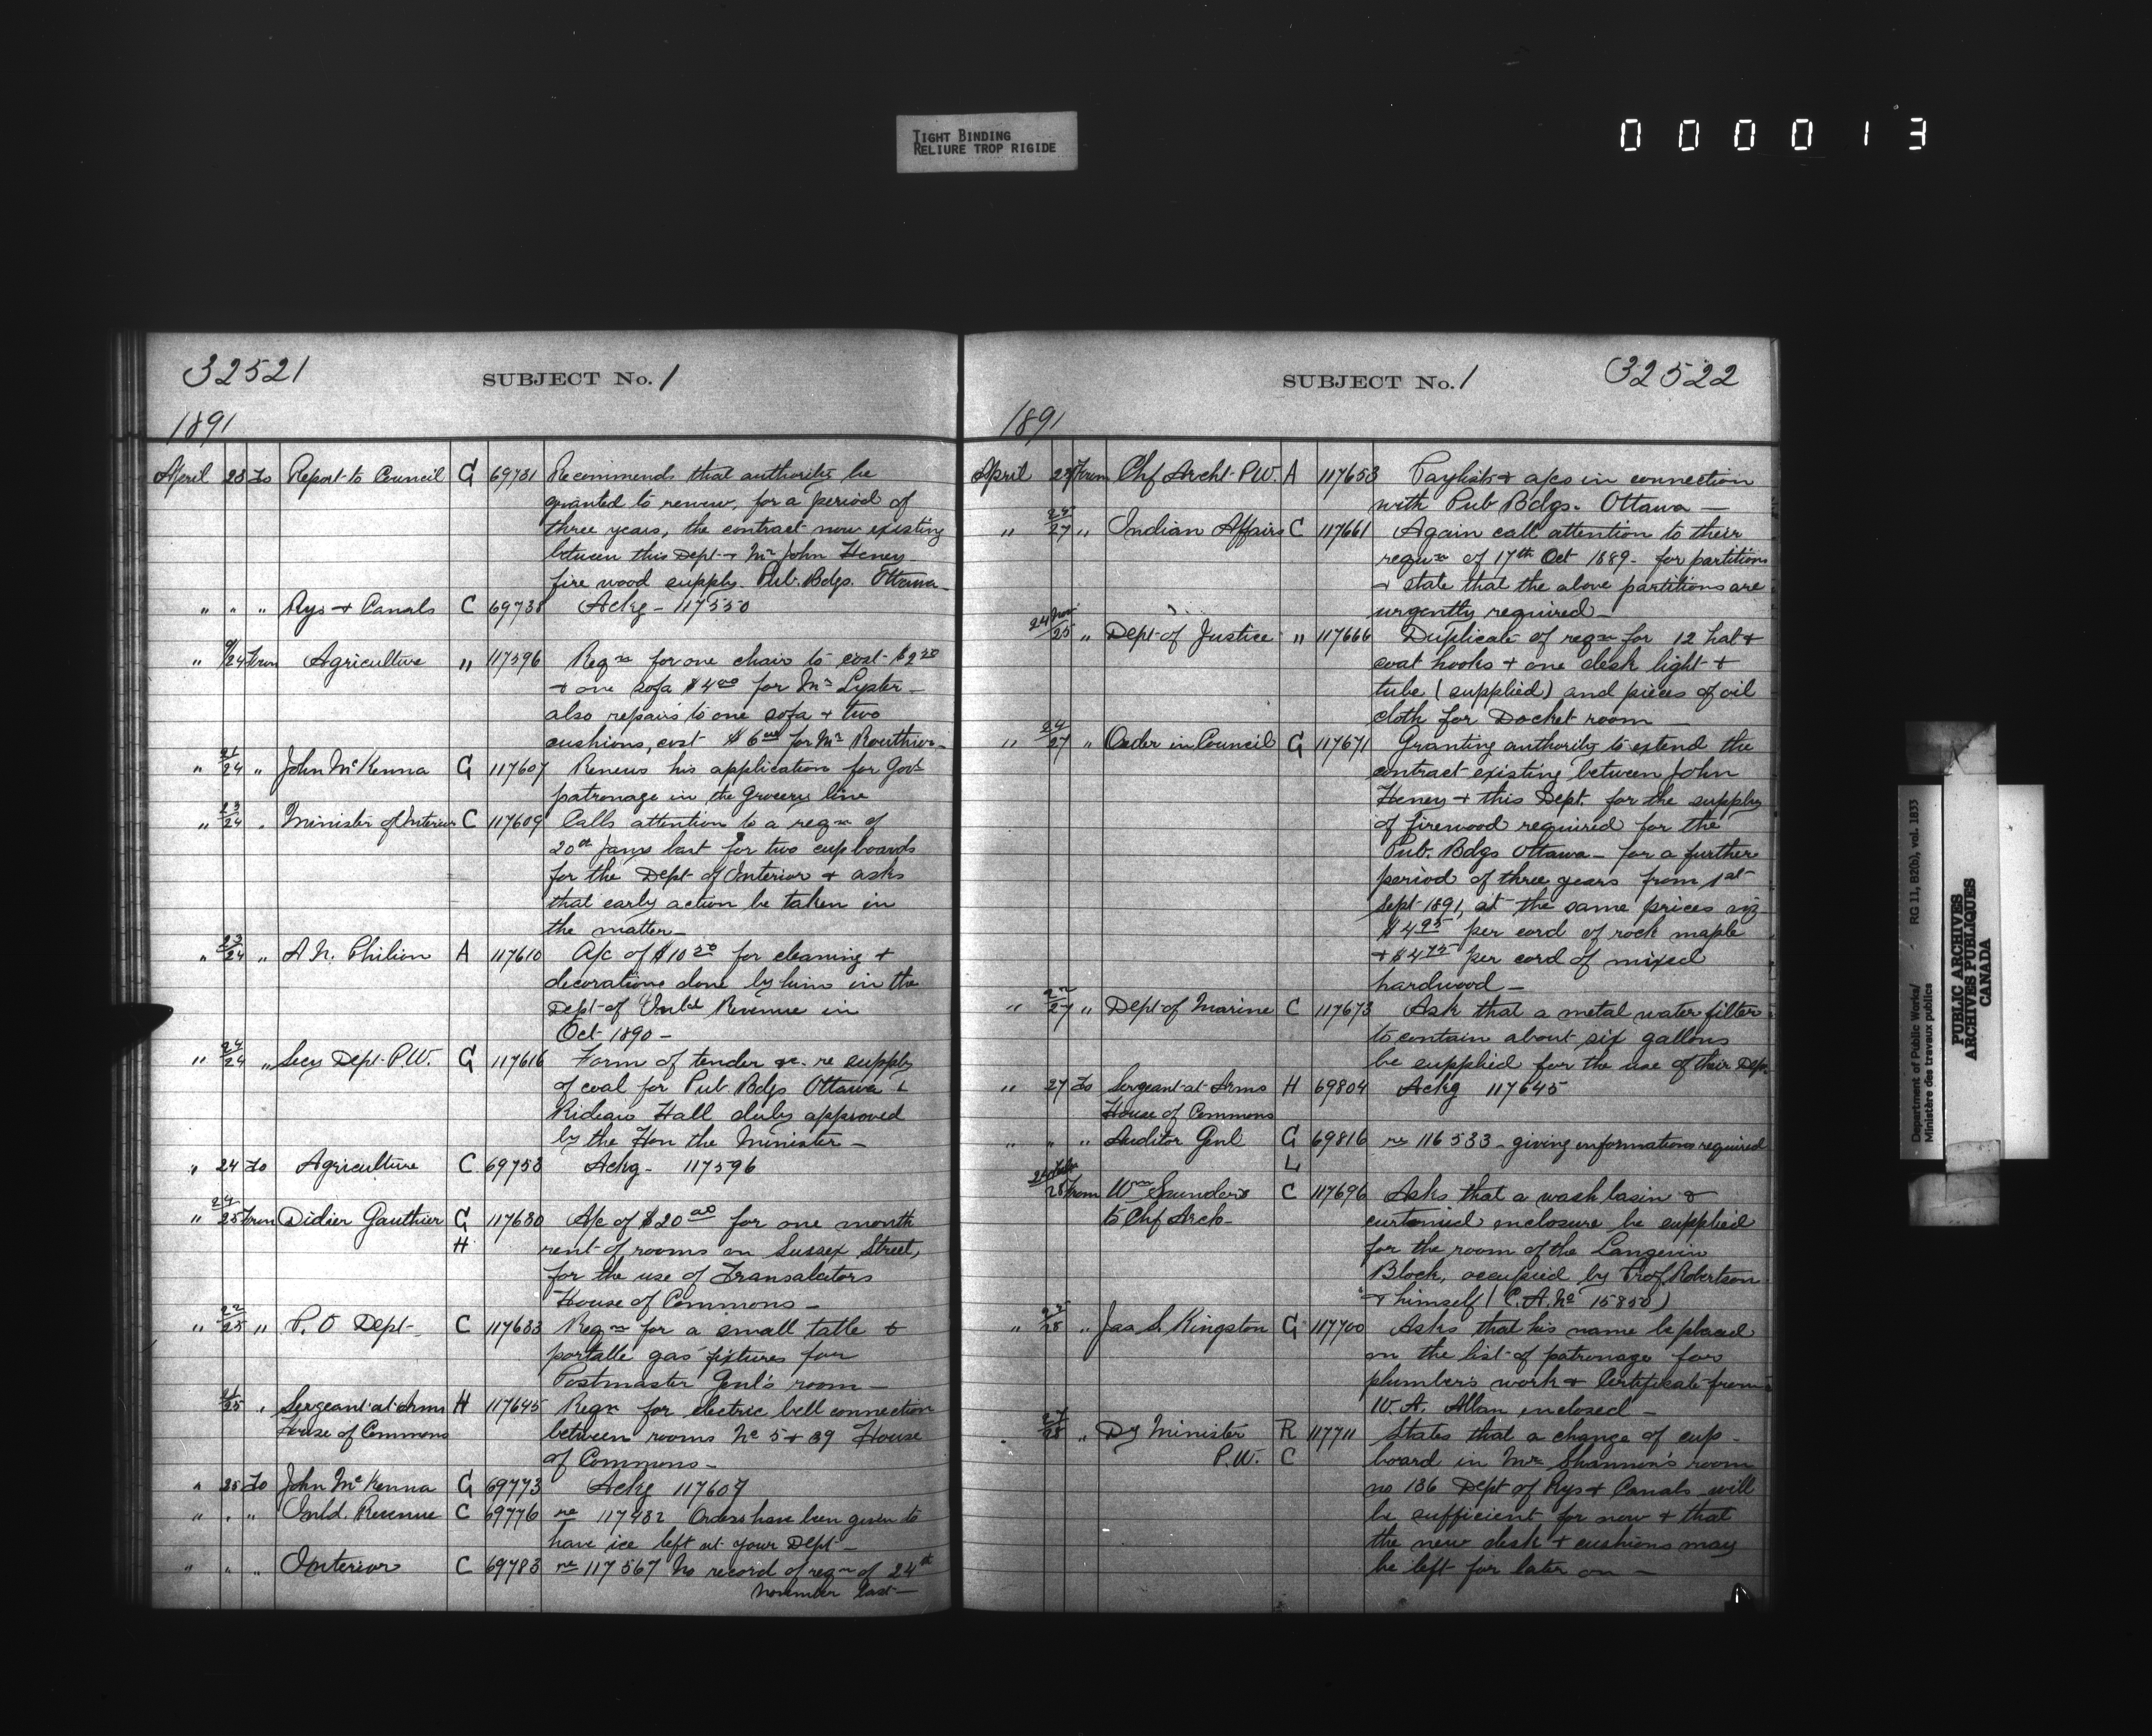 TIGHT BINDING
RELIURE TROP RIGIDE
0 0 0 0 1 3
32521
SUBJECT No. 1
1891
April 23 To Report to Council G 69731 Recommends that authority be
granted to renew, for a period of
three years, the contract now existing
between this Dept + Mr John Heney
fire wood supply Pub. Bdgs. Ottawa
" " " Rys + Canals C 69738 Ackg - 117550
" /24 From Agriculture " 117596 Reqn for one chair to cost $2 50
+ one sofa $4 00 for Mr Lyster -
also repairs to one sofa + two
cushions, cost $6 00 for Mr Routhier -
" 21/24 " John McKenna G 117607 Renews his application for Govt
patronage in the Grocery line
" 23/24 " Minister of Interior C 117609 Calls attention to a reqn of
20th Jany last for two cupboards
for the Dept of Interior + asks
that early action be taken in
the matter -
" 23/24 " A N. Philion A 117610 A/c of $10 50 for cleaning +
decorations done by him in the
Dept of Inld Revenue in
Oct 1890 -
" 24/24 " Secy Dept P.W. G 117616 Form of tender &c. re supply
of coal for Pub Bdgs Ottawa &
Rideau Hall duly approved
by the Hon the Minister -
" 24 To Agriculture C 69753 Ackg - 117596
" 24/25 From Didier Gauthier G 117630 A/c of $20 00 for one month
H rent of rooms on Sussex Street,
for the use of Transalators
House of Commons -
" 22/25 " P. O Dept - C 117633 Reqn for a small table &
portable gas fixtures for
Postmaster Genl's room -
/25 " Sergeant-at-Arms H 117645 Reqn for electric bell connection
House of Commons between rooms No 5 + 39 House
of Commons -
" 25 To John McKenna G 69773 Ackg 117607
" " " Inld. Revenue C 69776 re 117482 Orders have been given to
have ice left at your Dept -
" " " Interior C 69783 re 117567 No record of reqn of 24th
November last -
SUBJECT No. 1
32522
1891
April 27 From Chf Archt P.W. A 117653 Paylists + a/cs in connection
with Pub Bdgs. Ottawa -
" 25/27 " Indian Affairs C 117661 Again call attention to their
reqn of 17th Oct 1889 - for partitions
+ state that the above partitions are
urgently required -
24 Nov/25 " Dept of Justice " 117666 Duplicate of reqn for 12 hat +
coat hooks + one desk light +
tube (supplied) and pieces of oil
cloth for Docket room -
" 24/27 " Order in Council G 117671 Granting authority to extend the
contract existing between John
Heney + this Dept. for the supply
of firewood required for the
Pub. Bdgs Ottawa - for a further
period of three years from 1st
Sept 1891, at the same prices viz
$4 95 per cord of rock maple
+ $4 75 per cord of mixed
hardwood -
" 22/27 " Dept of Marine C 117673 Ask that a metal water filter
to contain about six gallons
be supplied for the use of their Dept.
" 27 To Sergeant-at-Arms H 69804 Ackg 117645
House of Commons
" " " Auditor Genl G 69816 re 116533 - giving informations required
L
/28 From Wm Saunders C 117696 Asks that a wash basin &
to Chf Arch - curtained enclosure be supplied
for the room of the Langevin
Block, occupied by Prof. Robertson
+ himself (C.A. No 15850)
" /28 " Jas S. Kingston G 117700 Asks that his name be placed
on the list of patronage for
plumber's work + Certificate from
W. A. Allan enclosed -
27/28 " Dy Minister R 117711 States that a change of cup-
P.W. C board in Mr Shannon's room
no 136 Dept of Rys + Canals will
be sufficient for now + that
the new desk + cushions may
be left for later on -
Department of Public Works/ RG 11, B2(b), vol. 1833
Ministère des travaux publics
PUBLIC ARCHIVES
ARCHIVES PUBLIQUES
CANADA